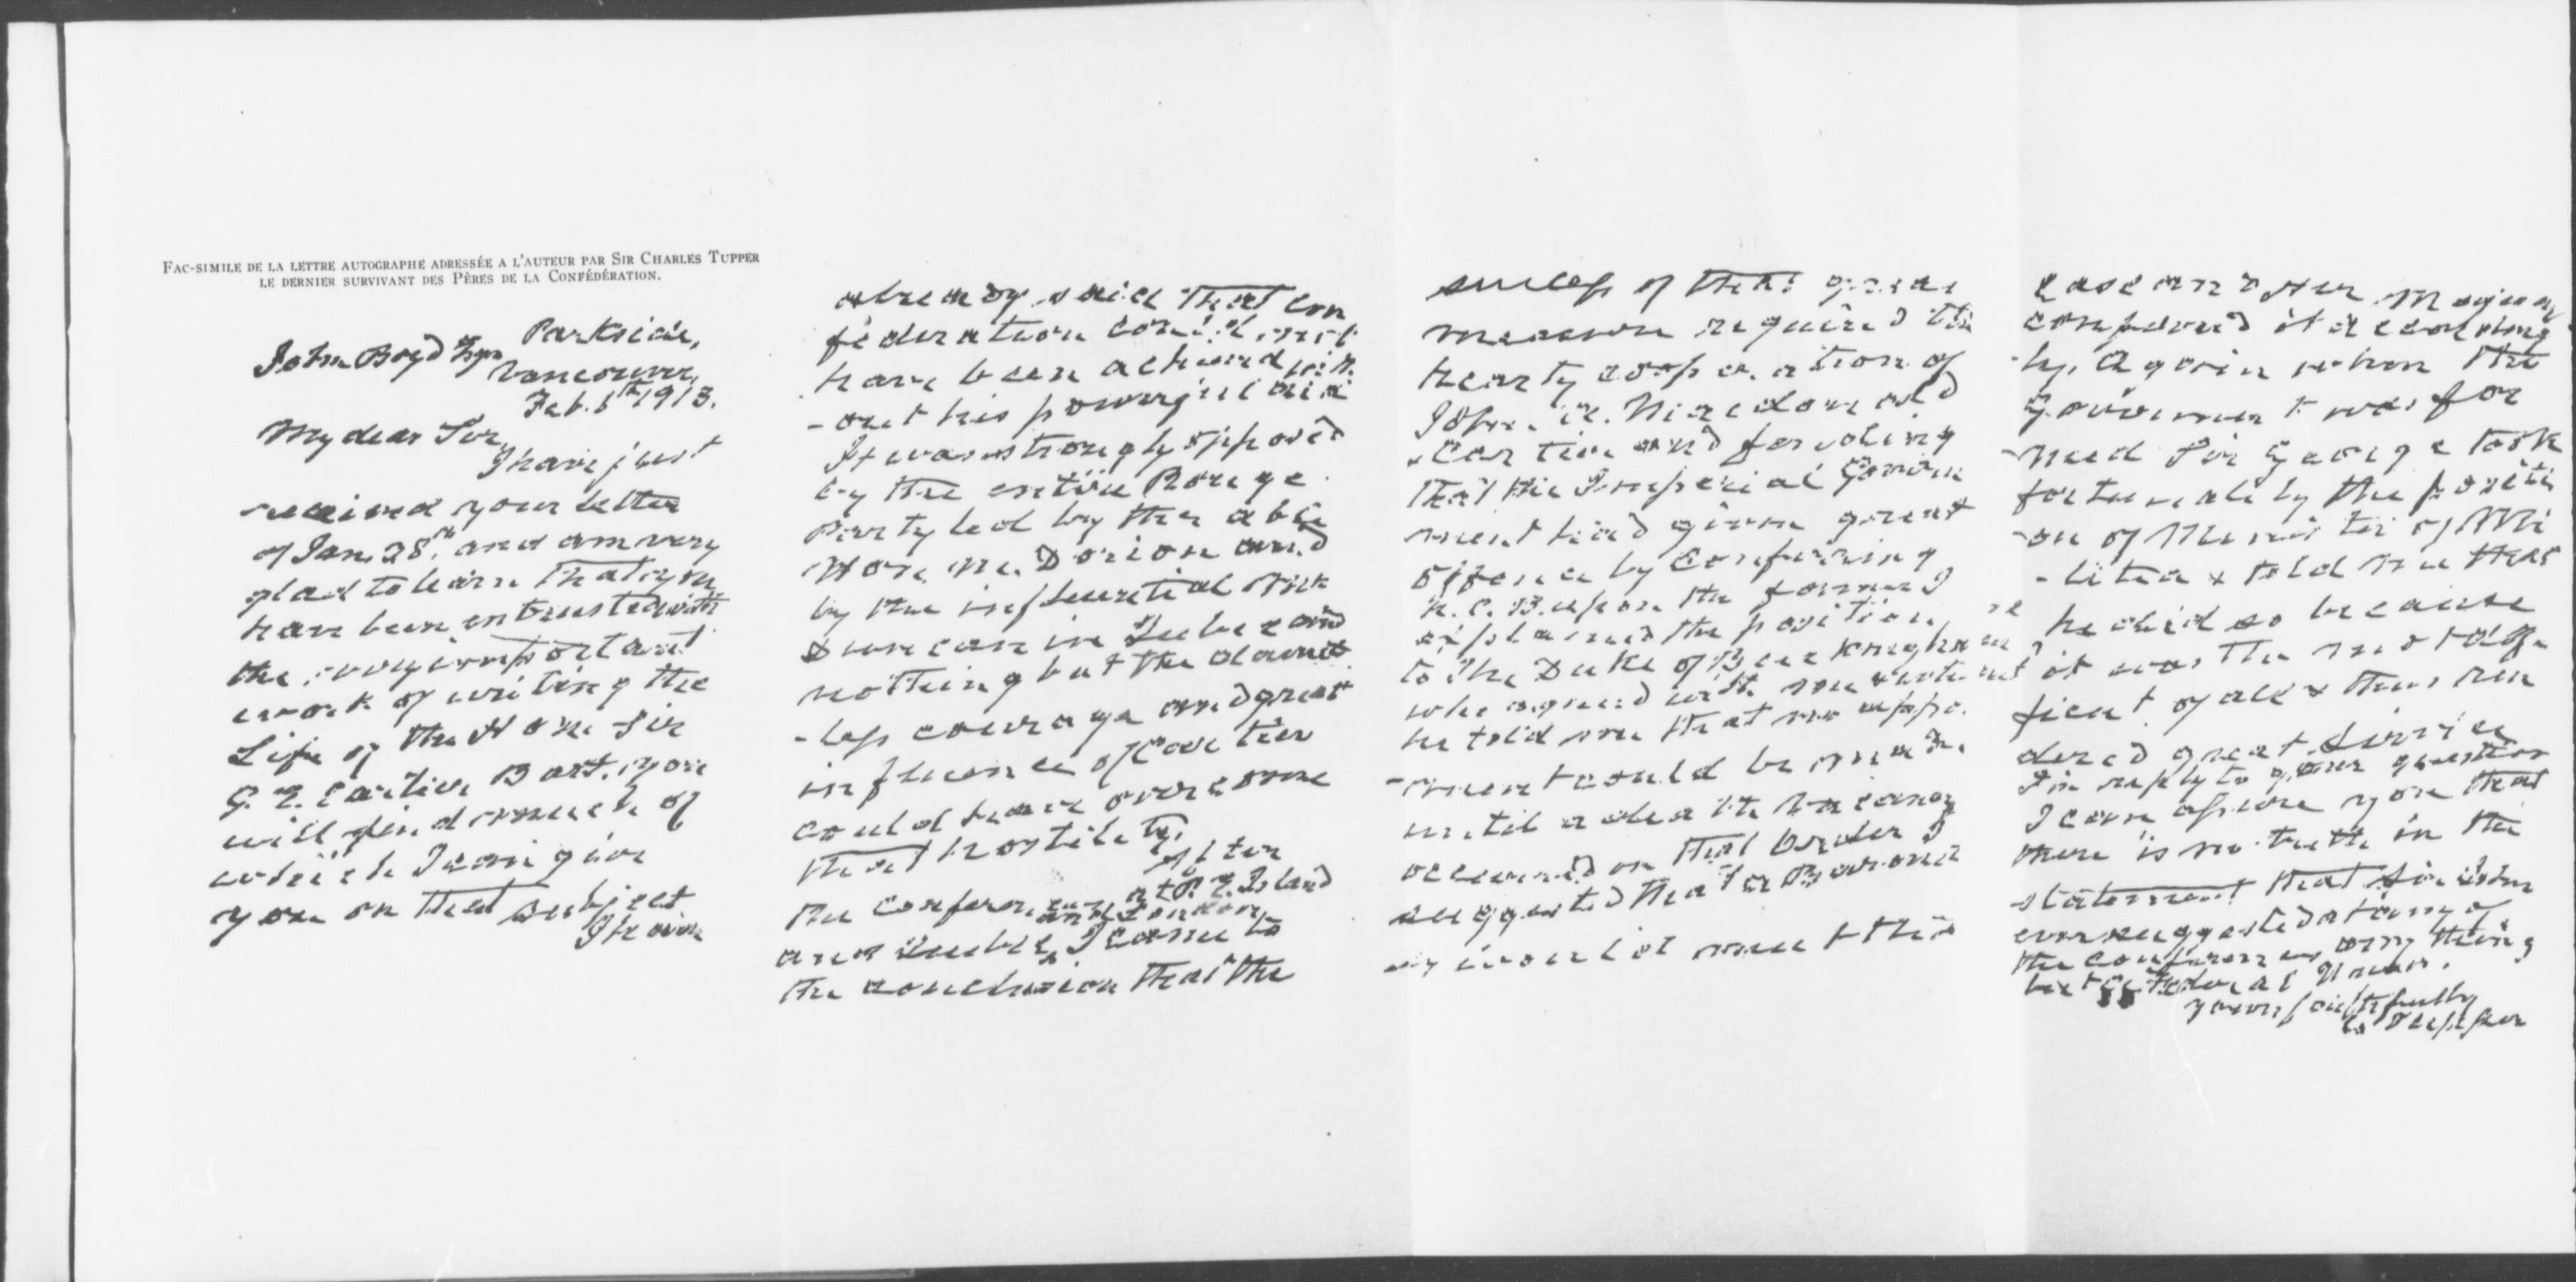 FAC-SIMILE DE LA LETTRE AUTOGRAPHE ADRESSÉE A L'AUTEUR PAR SIR CHARLES TUPPER
LE DERNIER SURVIVANT DES PÈRES DE LA CONFÉDÉRATION.
Parkside,
John Boyd Esqr
Vancouver,
Feb. 5th 1913.
My dear Sir,
I have just
received your letter
of Jan. 28th. and am very
glad to learn that you
have been entrusted with
the very important
work of writing the
Life of the Hon. Sir
G. E. Cartier Bart. you
will find much of
which I can give
you on that subject
I have
already said that con
federation could not
have been achieved with
-out his powerful aid
It was strongly opposed
by the entire Rouge
Party led by the able
Hon. Mr. Dorion and
by the influential Mr
Duncan in Quebec and
nothing but the daunt
-less courage and great
influence of Cartier
could have overcome
that hostility.
After
the conferences at P. E. Island
and London
and Quebec, I came to
the conclusion that the
success of that great
measure required the
hearty cooperation of
John A. Macdonald
& Cartier and
that the Imperial Govern
ment had given great
offence by conferring
K. C. B. upon the former I
explained the position
to the Duke of Buckingham
who agreed with me
he told me that no
-ment could be made
until a death vacancy
occurred on that order I
suggested that a Baronet
-cy would meet the
case and Her Majesty
conferred it according
-ly. Again when the
Government was for
-med Sir George took
fortunately the positi
-on of Minister of Mi
-litia & told me that
he did so because
it was the most diffi
ficult of all & thus ren
dered great service
In reply to your question
I can assure you that
there is no truth in the
statement that Sir John
ever suggested at any of
the conferences any thing
but a Federal Union.
yours faithfully
C. Tupper